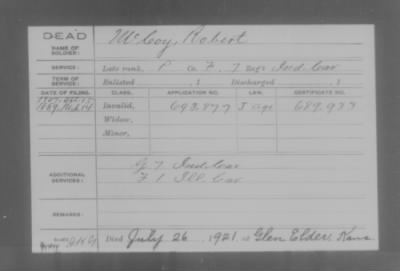 DEAD
NAME OF SOLDIER:
McCoy, Robert
SERVICE:
Late rank, P Co. F, 7 Reg't Ind. Cav
TERM OF SERVICE:
Enlisted , 1 Discharged , 1
DATE OF FILING. CLASS. APPLICATION NO. LAW. CERTIFICATE NO.
Invalid, 693.877 J 689.933
Widow,
Minor,
ADDITIONAL SERVICES:
G 7 Ind. Cav
F 1 Ill Cav
REMARKS:
Died July 26, 1921, at Glen Elder, Kans